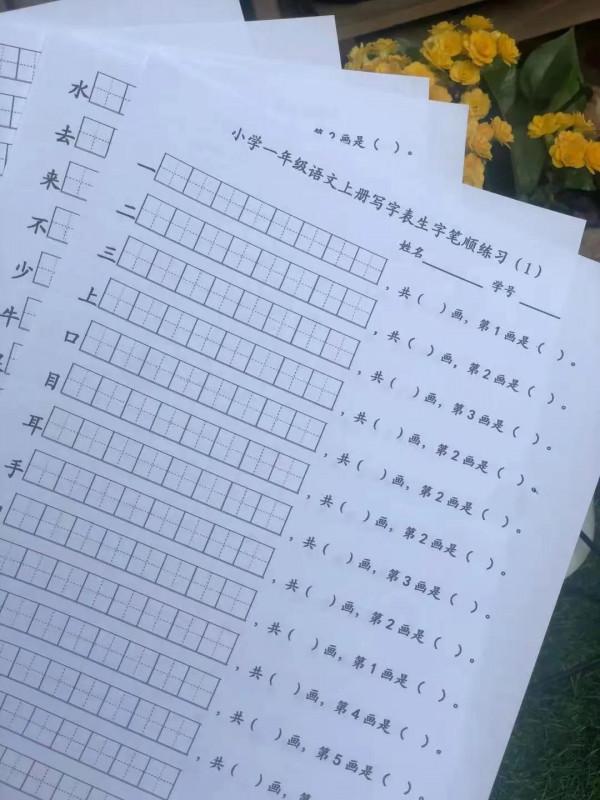 画是（ ）。
小学一年级语文上册写字表生字笔顺练习（1）
姓名______ 学号____
一 ，共（ ）画，第1画是（ ）。
二 ，共（ ）画，第2画是（ ）。
三 ，共（ ）画，第3画是（ ）。
上 ，共（ ）画，第2画是（ ）。
口 ，共（ ）画，第2画是（ ）。
目 ，共（ ）画，第2画是（ ）。
耳 ，共（ ）画，第3画是（ ）。
手 ，共（ ）画，第2画是（ ）。
，共（ ）画，第1画是（ ）。
，共（ ）画，第4画是（ ）。
，共（ ）画，第5画是（ ）。
，共（ ）画，第
水
去
来
不
少
牛